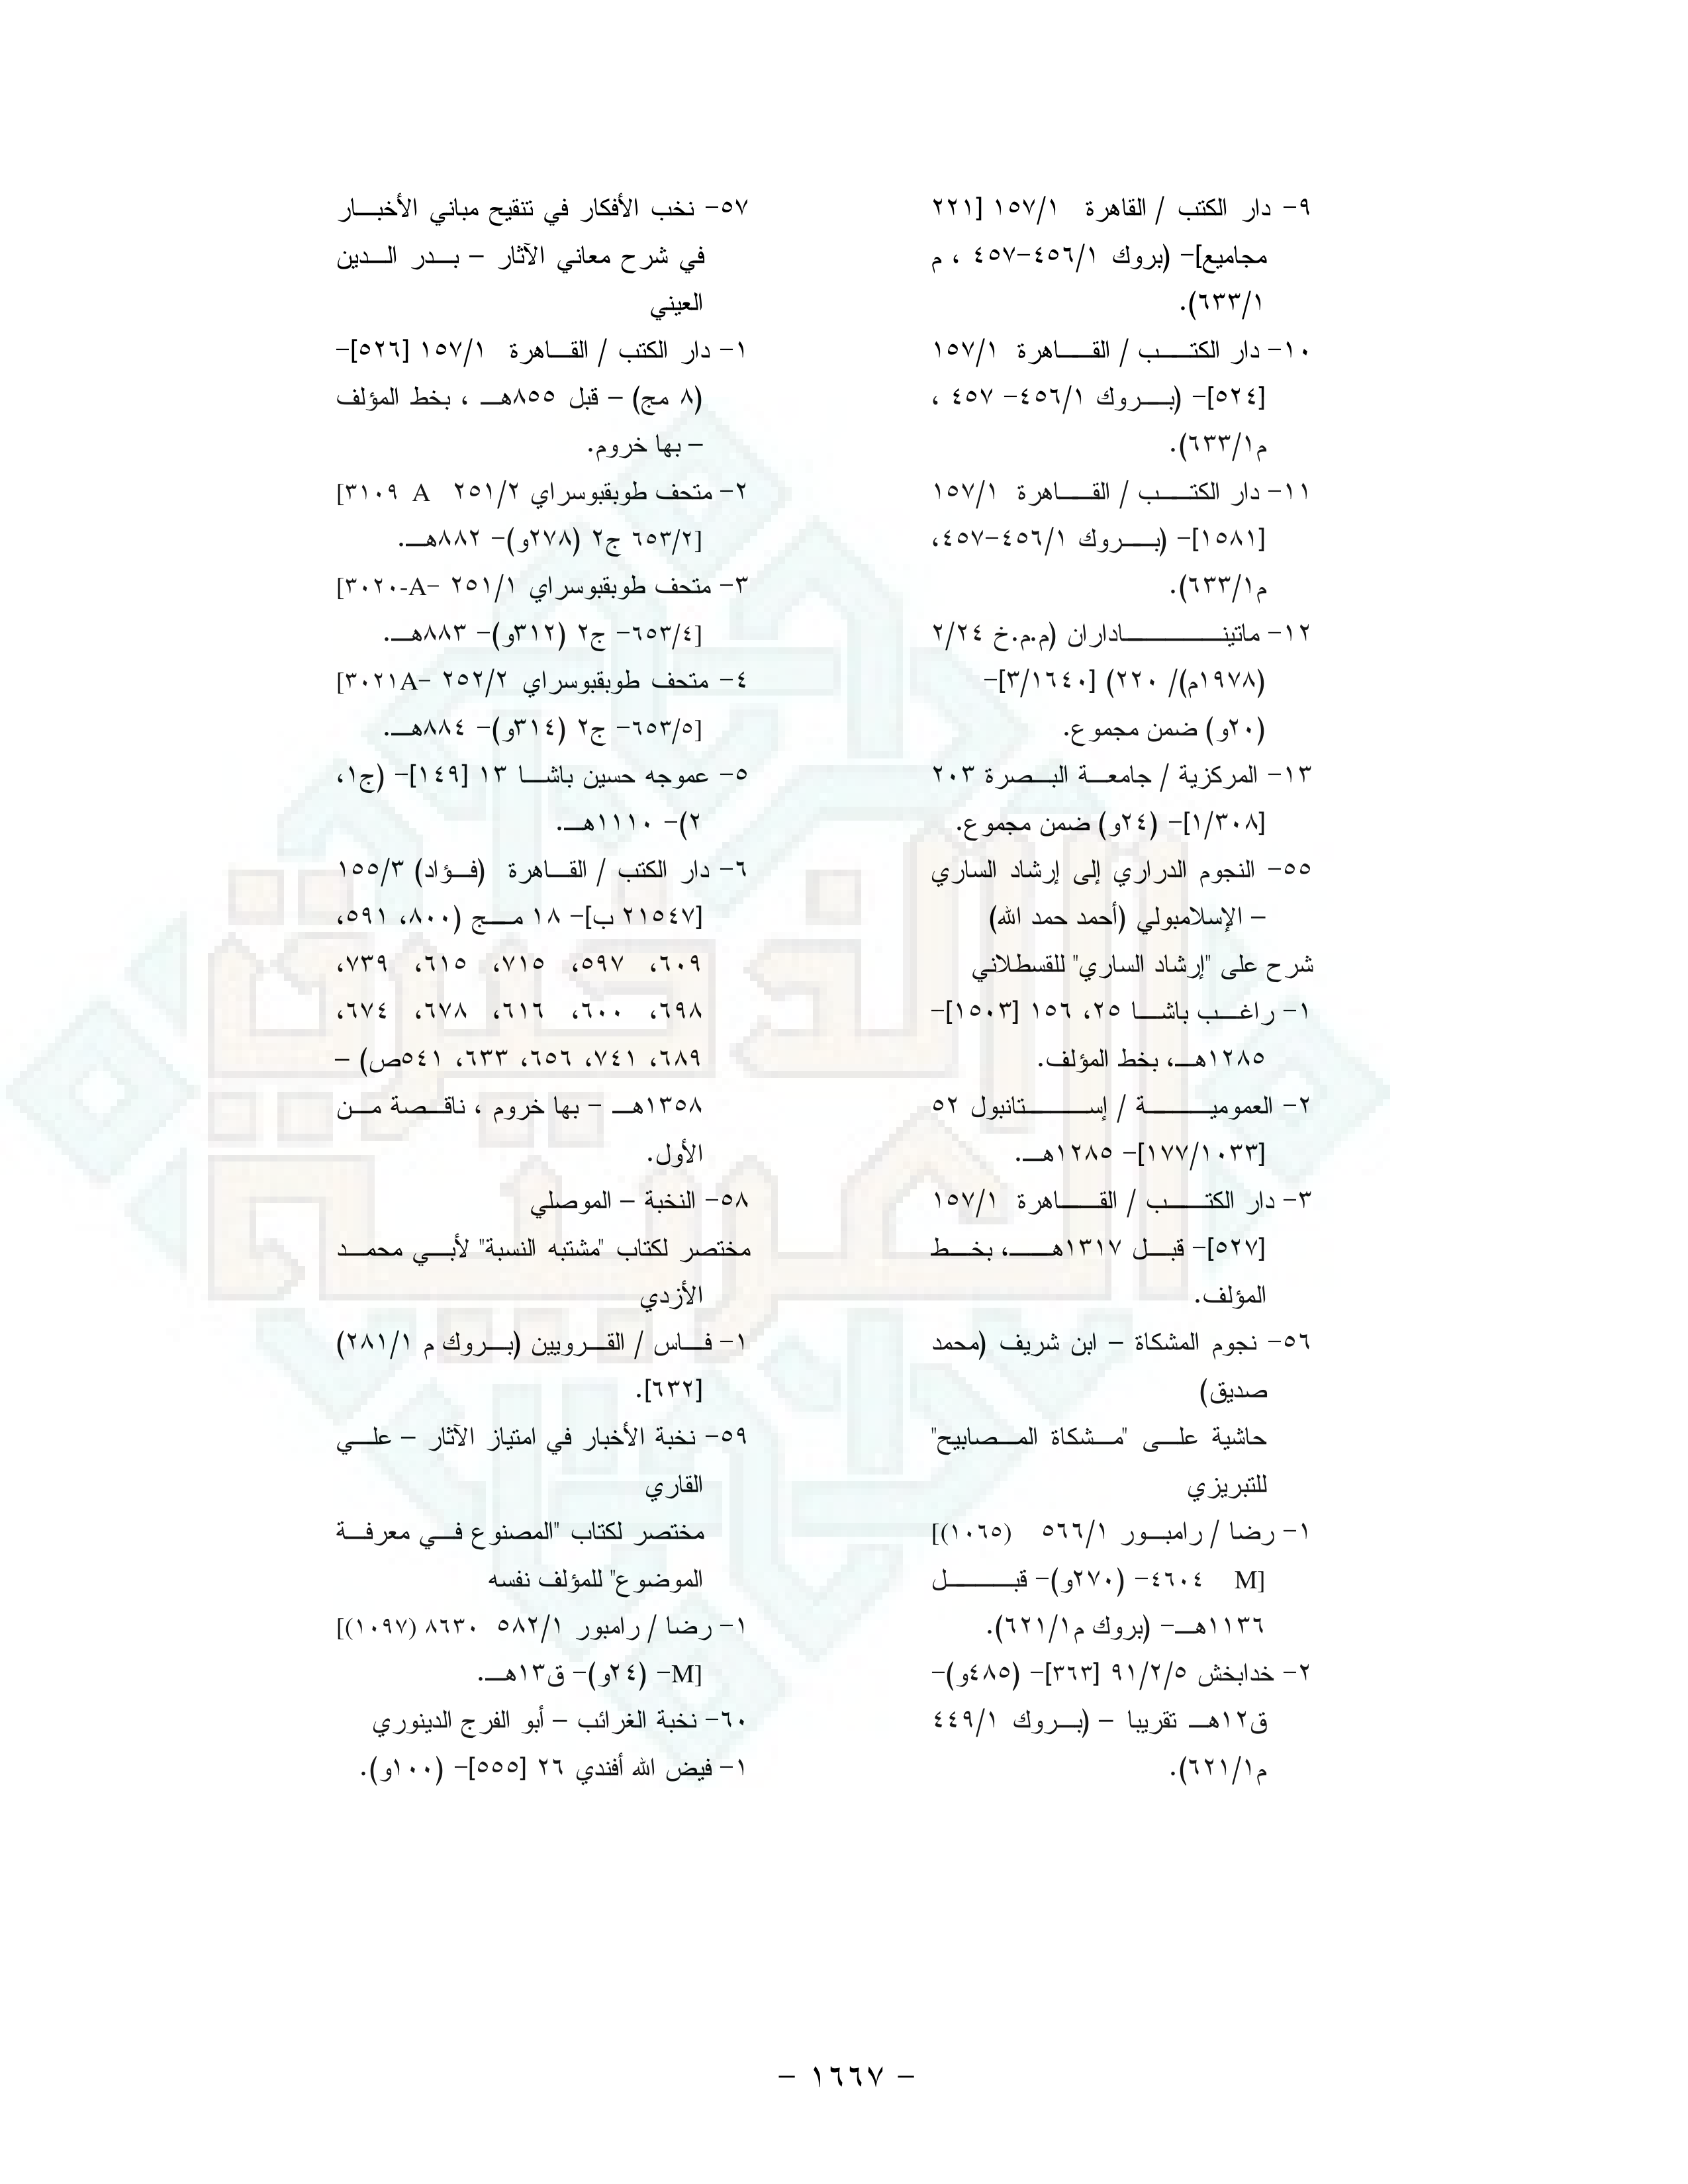 ٩- دار الكتب / القاهرة ١/‏١٥٧ [٢٢١
مجاميع]- (بروك ١/‏٤٥٦-٤٥٧ ، م
١/‏٦٣٣).
١٠- دار الكتب / القاهرة ١/‏١٥٧
[٥٢٤]- (بروك ١/‏٤٥٦- ٤٥٧ ،
م١/‏٦٣٣).
١١- دار الكتب / القاهرة ١/‏١٥٧
[١٥٨١]- (بروك ١/‏٤٥٦-٤٥٧،
م١/‏٦٣٣).
١٢- ماتيناداران (م.م.خ ٢/٢٤
(١٩٧٨م)/ ٢٢٠) [٣/١٦٤٠]-
(٢٠و) ضمن مجموع.
١٣- المركزية / جامعة البصرة ٢٠٣
[١/٣٠٨]- (٢٤و) ضمن مجموع.
٥٥- النجوم الدراري إلى إرشاد الساري
– الإسلامبولي (أحمد حمد الله)
شرح على "إرشاد الساري" للقسطلاني
١- راغب باشا ٢٥، ١٥٦ [١٥٠٣]-
١٢٨٥هـ، بخط المؤلف.
٢- العمومية / إستانبول ٥٢
[١٧٧/١٠٣٣]- ١٢٨٥هـ.
٣- دار الكتب / القاهرة ١/‏١٥٧
[٥٢٧]- قبل ١٣١٧هـ، بخط
المؤلف.
٥٦- نجوم المشكاة – ابن شريف (محمد
صديق)
حاشية على "مشكاة المصابيح"
للتبريزي
١- رضا / رامبور ١/‏٥٦٦ (١٠٦٥)]
[M ٤٦٠٤- (٢٧٠و)- قبل
١١٣٦هـ- (بروك م١/‏٦٢١).
٢- خدابخش ٥/‏٢/‏٩١ [٣٦٣]- (٤٨٥و)-
ق١٢هـ تقريبا – (بروك ١/‏٤٤٩
م١/‏٦٢١).
٥٧- نخب الأفكار في تنقيح مباني الأخبار
في شرح معاني الآثار – بدر الدين
العيني
١- دار الكتب / القاهرة ١/‏١٥٧ [٥٢٦]-
(٨ مج) – قبل ٨٥٥هـ ، بخط المؤلف
– بها خروم.
٢- متحف طوبقبوسراي ٢/‏٢٥١ A ٣١٠٩]
[٦٥٣/٢ ج٢ (٢٧٨و)- ٨٨٢هـ.
٣- متحف طوبقبوسراي ١/‏٢٥١ -A-٣٠٢٠]
[٦٥٣/٤- ج٢ (٣١٢و)- ٨٨٣هـ.
٤- متحف طوبقبوسراي ٢/‏٢٥٢ -A٣٠٢١]
[٦٥٣/٥- ج٢ (٣١٤و)- ٨٨٤هـ.
٥- عموجه حسين باشا ١٣ [١٤٩]- (ج١،
٢)- ١١١٠هـ.
٦- دار الكتب / القاهرة (فؤاد) ٣/‏١٥٥
[٢١٥٤٧ ب]- ١٨ مج (٨٠٠، ٥٩١،
٦٠٩، ٥٩٧، ٧١٥، ٦١٥، ٧٣٩،
٦٩٨، ٦٠٠، ٦١٦، ٦٧٨، ٦٧٤،
٦٨٩، ٧٤١، ٦٥٦، ٦٣٣، ٥٤١ص) –
١٣٥٨هـ – بها خروم ، ناقصة من
الأول.
٥٨- النخبة – الموصلي
مختصر لكتاب "مشتبه النسبة" لأبي محمد
الأزدي
١- فاس / القرويين (بروك م ١/‏٢٨١)
[٦٣٢].
٥٩- نخبة الأخبار في امتياز الآثار – علي
القاري
مختصر لكتاب "المصنوع في معرفة
الموضوع" للمؤلف نفسه
١- رضا / رامبور ١/‏٥٨٢ ٨٦٣٠ (١٠٩٧)]
[M- (٢٤و)- ق١٣هـ.
٦٠- نخبة الغرائب – أبو الفرج الدينوري
١- فيض الله أفندي ٢٦ [٥٥٥]- (١٠٠و).
- ١٦٦٧ -
الذخيرة
العربية